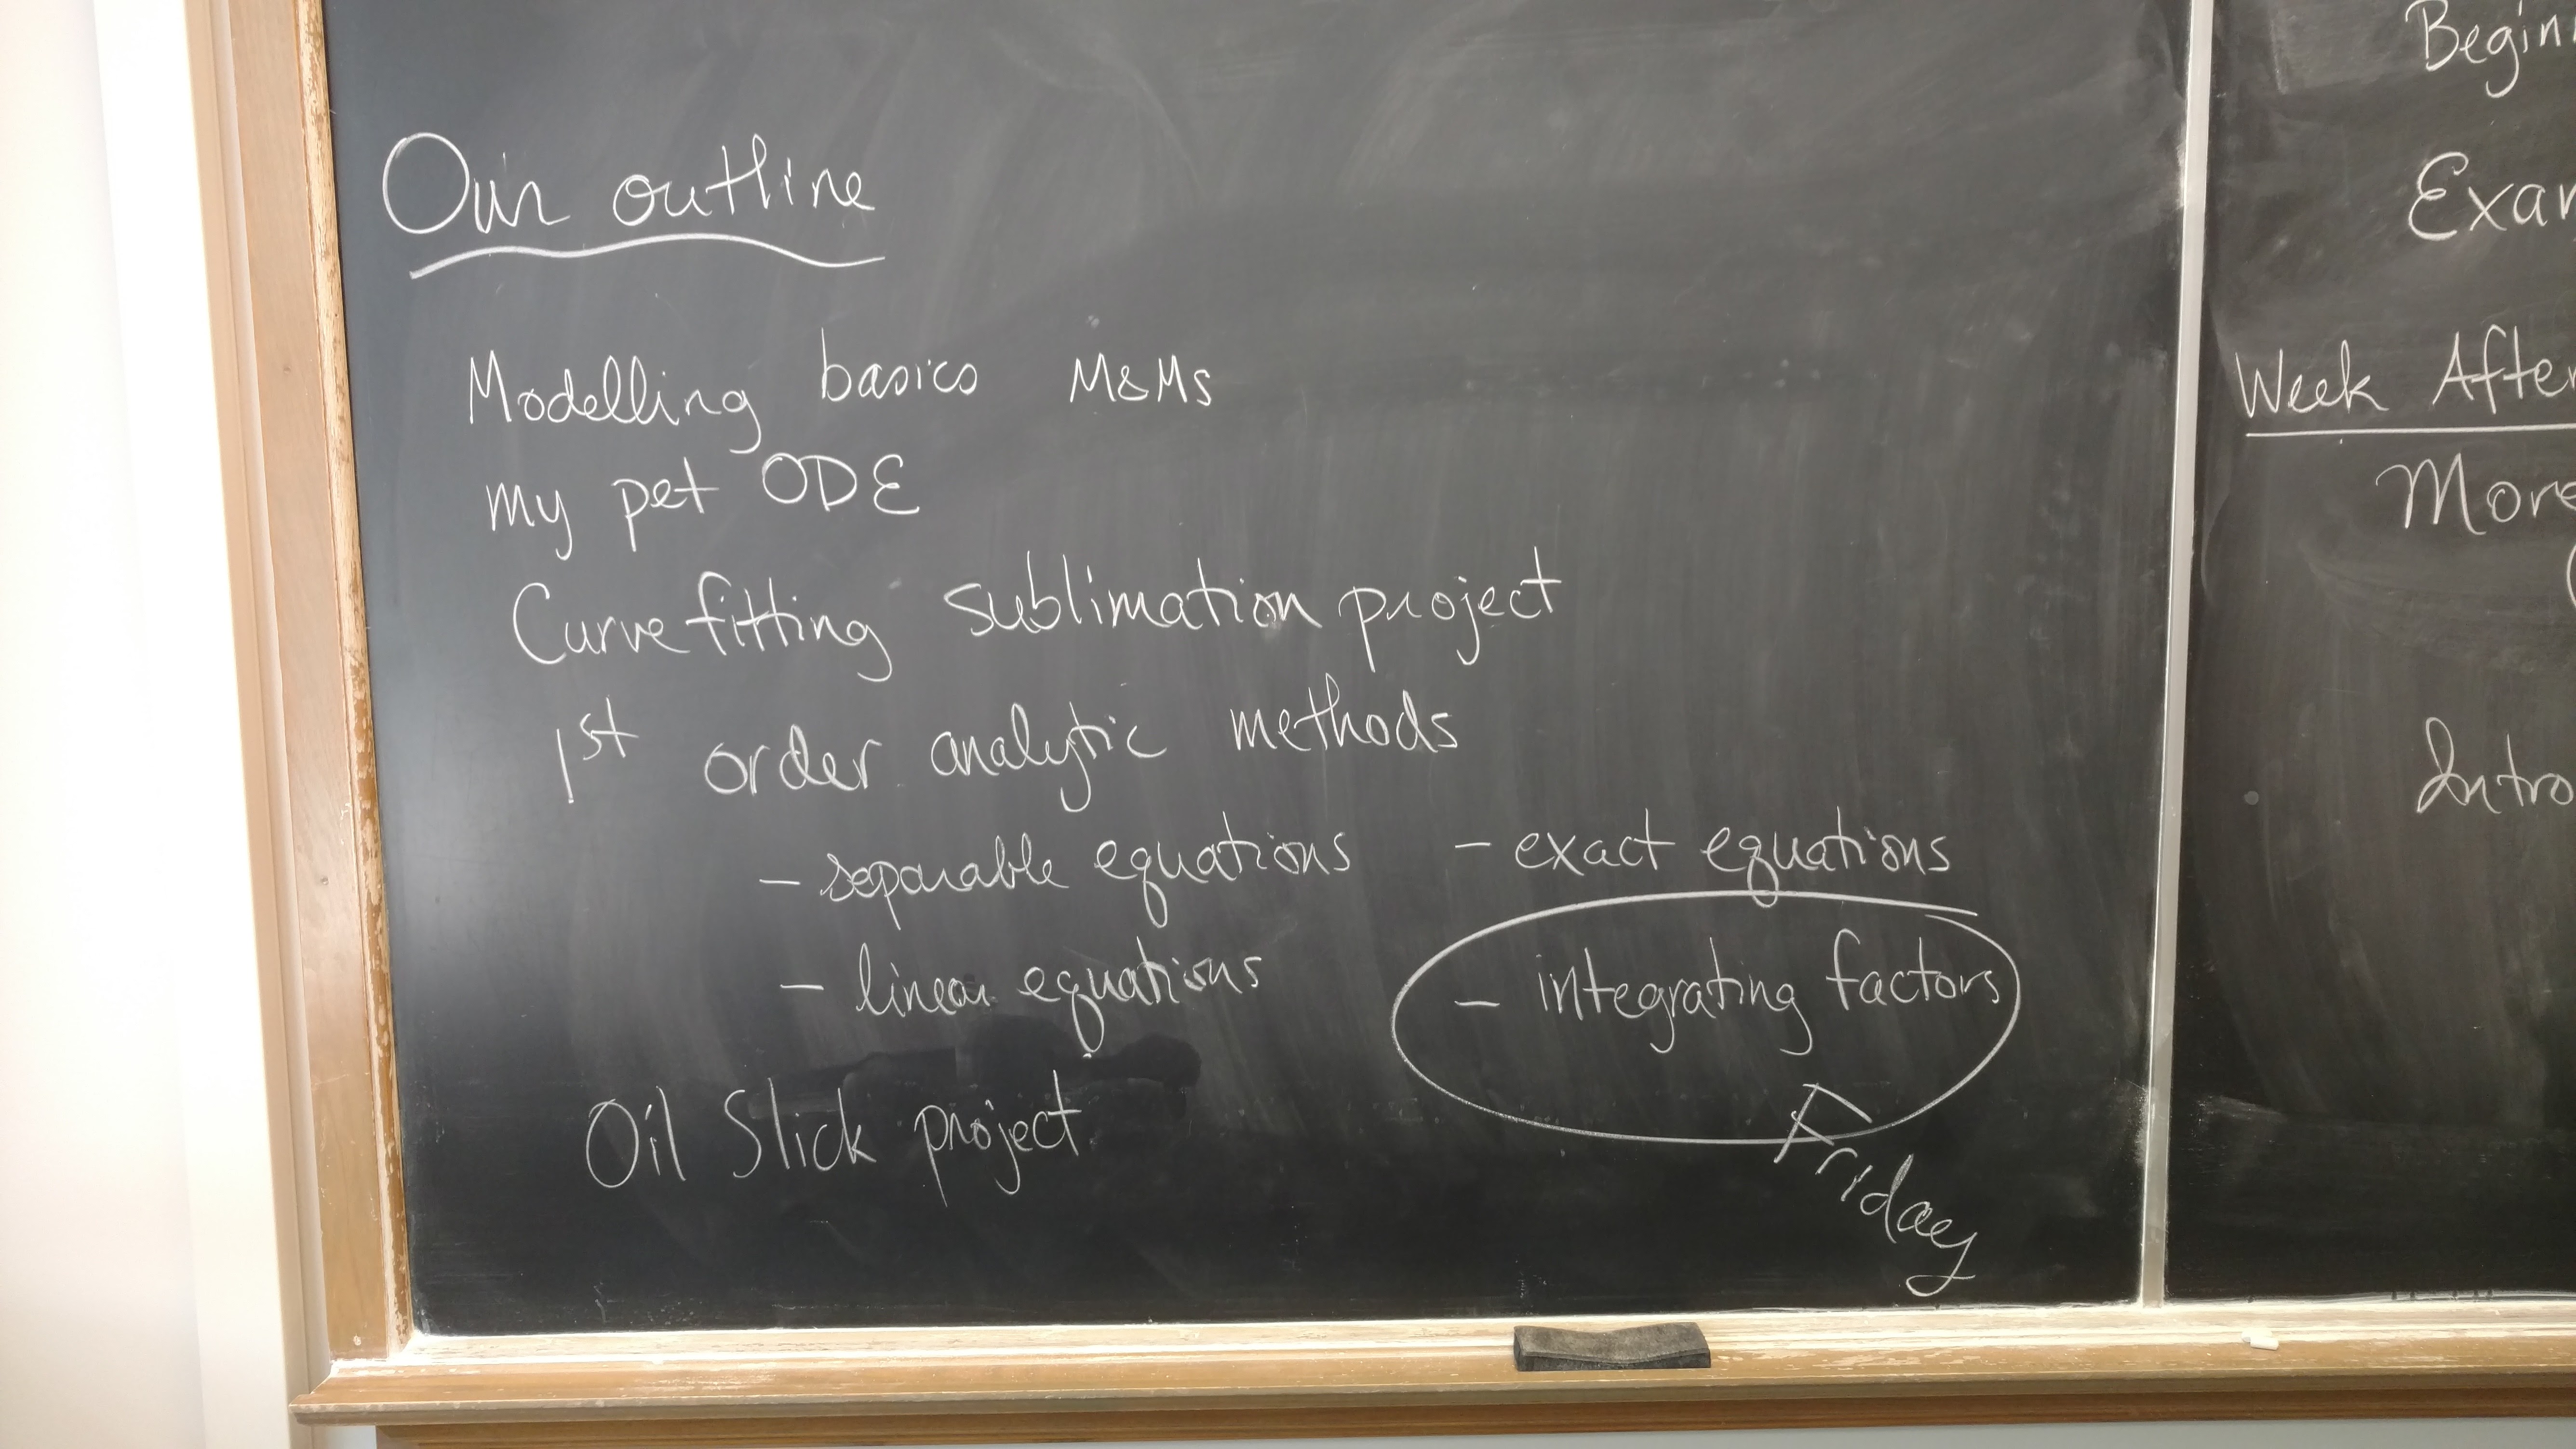 Our outline
Modelling basics M&Ms
my pet ODE
Curve fitting sublimation project
1st order analytic methods
- separable equations - exact equations
- linear equations - integrating factors
Friday
Oil Slick project
Begin
Exam
Week After
More
Intro